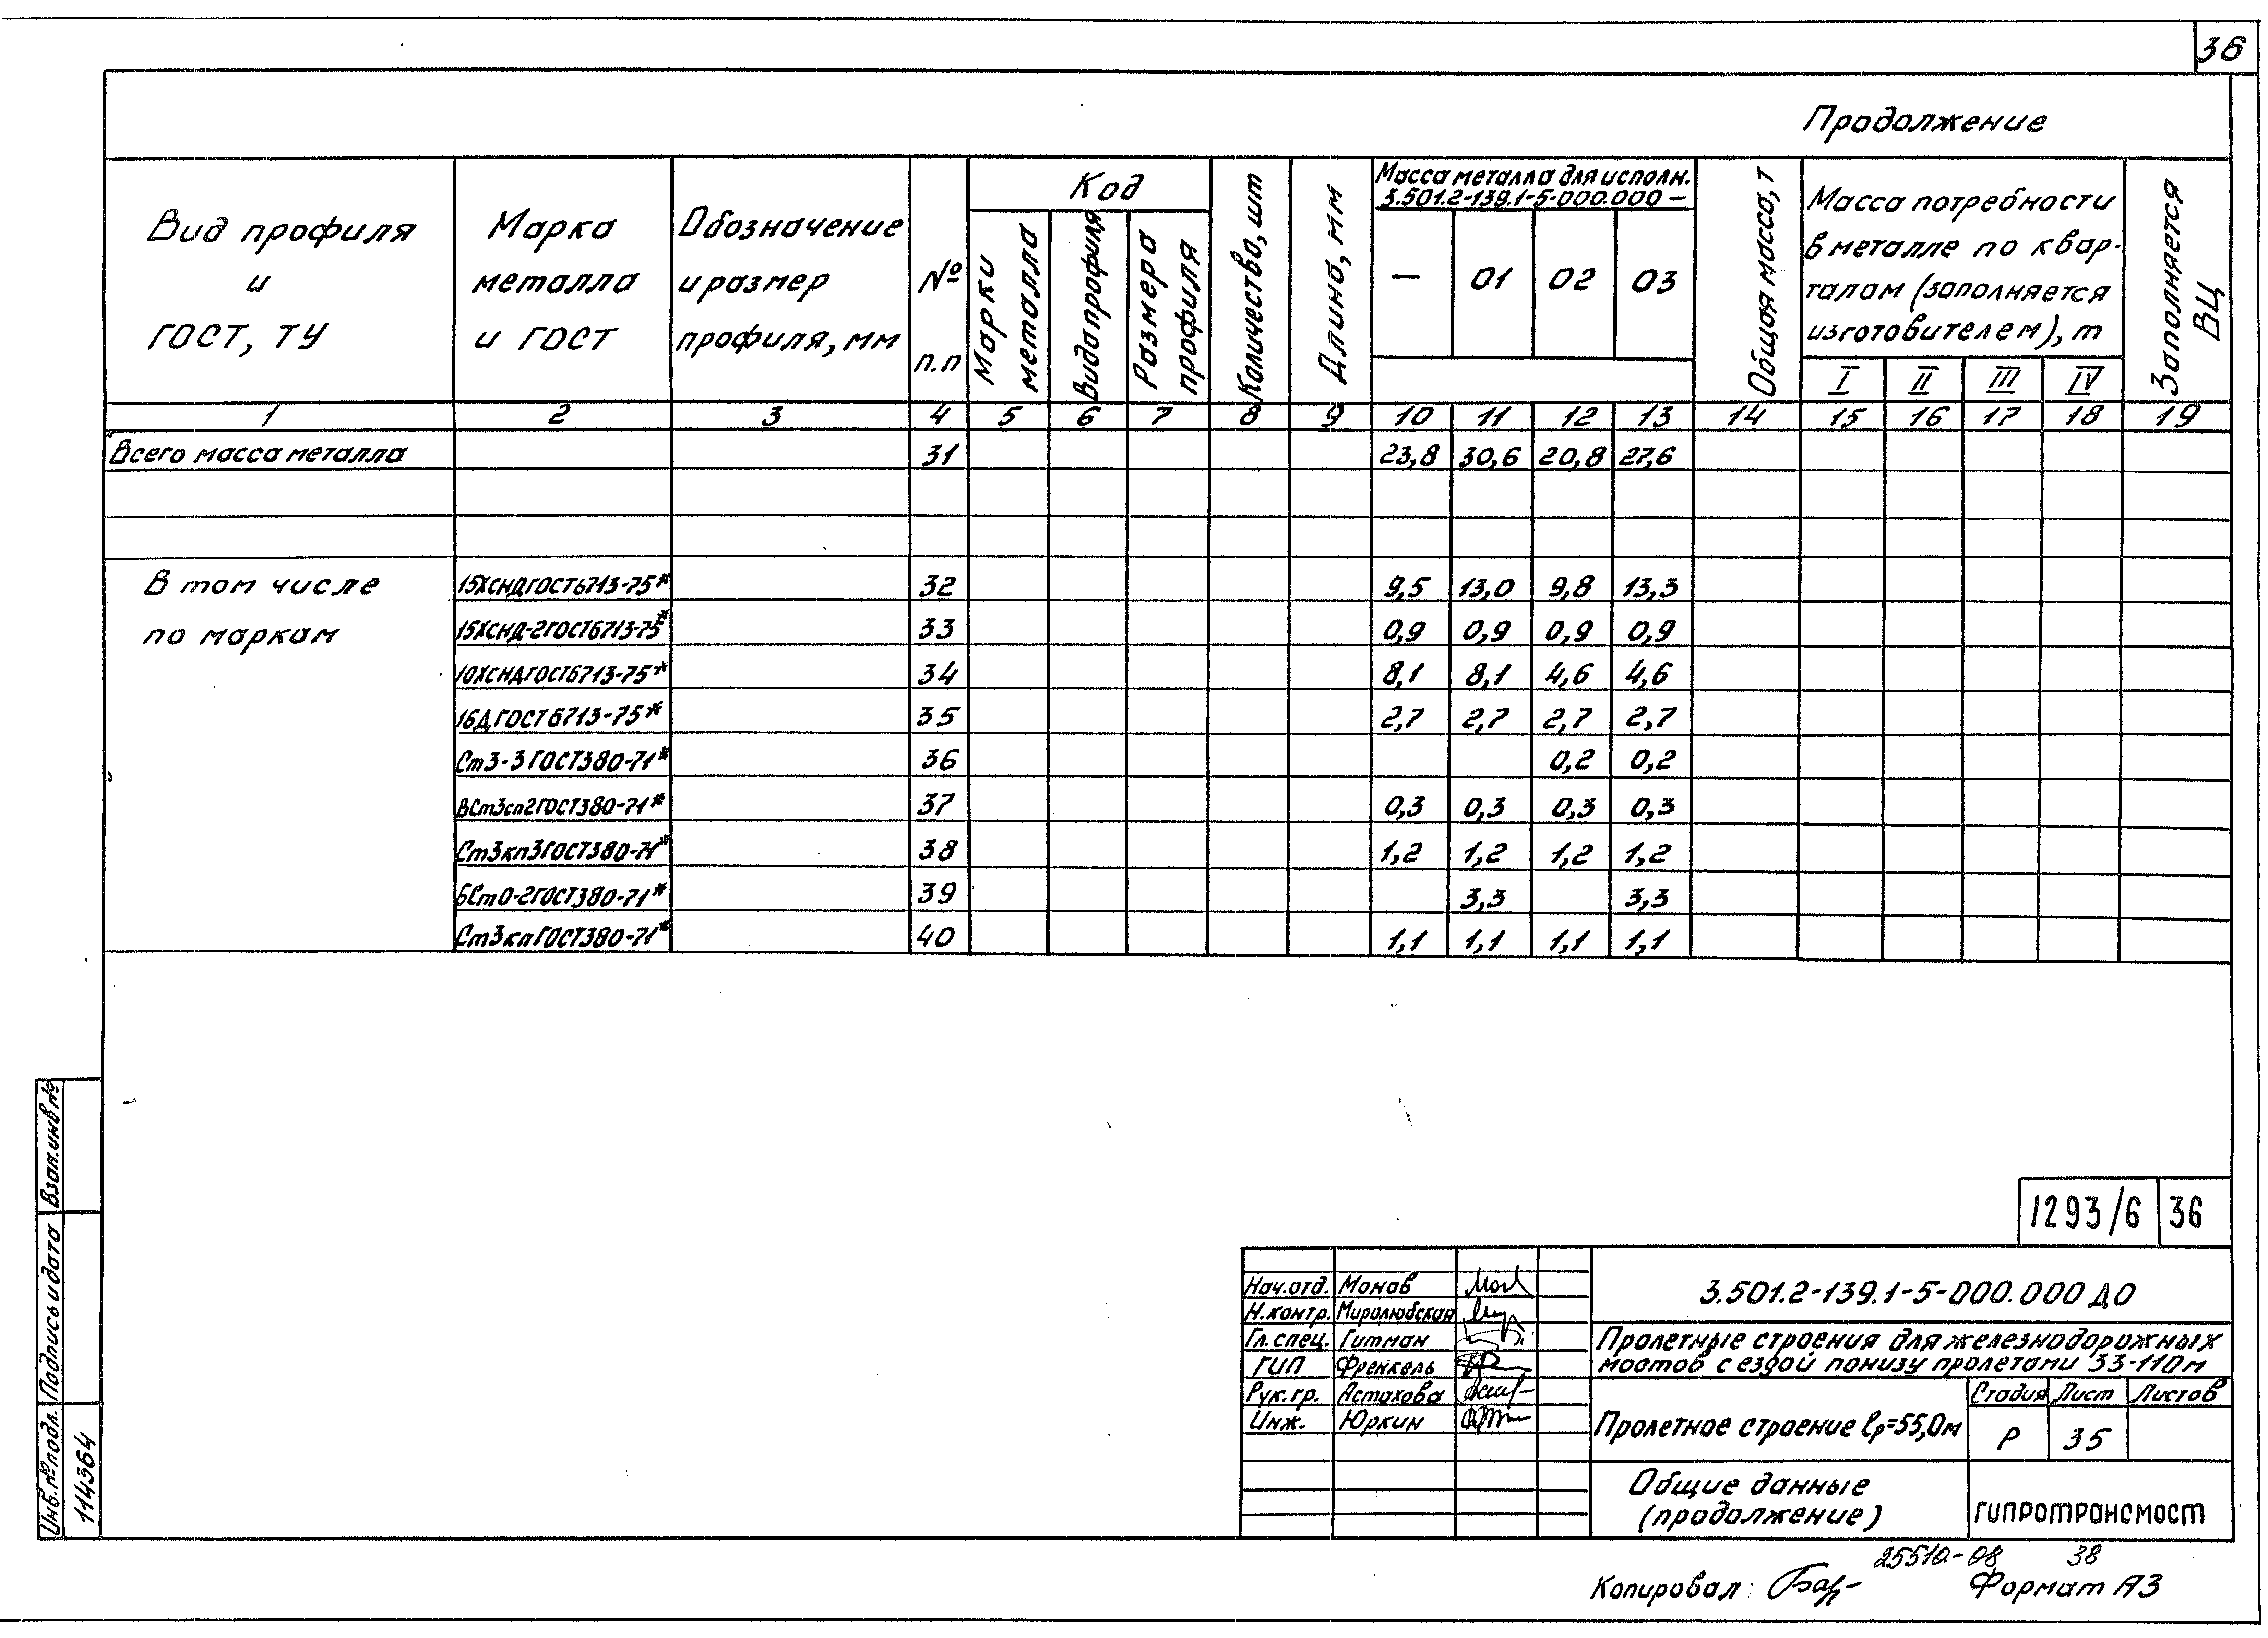 36
Продолжение
Вид профиля
и
ГОСТ, ТУ
Марка
металла
и ГОСТ
Обозначение
и размер
профиля, мм
№
п.п
Код
Марки
металла
Вида профиля
Размера
профиля
Количество, шт
Длина, мм
Масса металла для исполн.
3.501.2-139.1-5-000.000 —
— 01 02 03
Общая масса, т
Масса потребности
в металле по квар-
талам (заполняется
изготовителем), т
I II III IV
Заполняется
ВЦ
1 2 3 4 5 6 7 8 9 10 11 12 13 14 15 16 17 18 19
Всего масса металла 31 23,8 30,6 20,8 27,6
В том числе 15ХСНД ГОСТ6713-75* 32 9,5 13,0 9,8 13,3
по маркам 15ХСНД-2ГОСТ6713-75* 33 0,9 0,9 0,9 0,9
10ХСНД ГОСТ6713-75* 34 8,1 8,1 4,6 4,6
16Д ГОСТ6713-75* 35 2,7 2,7 2,7 2,7
Ст3-3 ГОСТ380-71* 36 0,2 0,2
ВСт3сп2ГОСТ380-71* 37 0,3 0,3 0,3 0,3
Ст3кп3ГОСТ380-71* 38 1,2 1,2 1,2 1,2
БСт0-2ГОСТ380-71* 39 3,3 3,3
Ст3кп ГОСТ380-71* 40 1,1 1,1 1,1 1,1
Взам.инв.№
Подпись и дата
Инв.№подл.
114364
1293/6 36
Нач.отд. Монов
Н.контр. Миролюбская
Гл.спец. Гитман
ГИП Френкель
Рук.гр. Астахова
Инж. Юркин
3.501.2-139.1-5-000.000 ДО
Пролетные строения для железнодорожных
мостов с ездой понизу пролетами 33-110м
Пролетное строение lр=55,0м
Стадия Лист Листов
Р 35
Общие данные
(продолжение)
ГИПРОТРАНСМОСТ
25510-08 38
Копировал: Формат А3